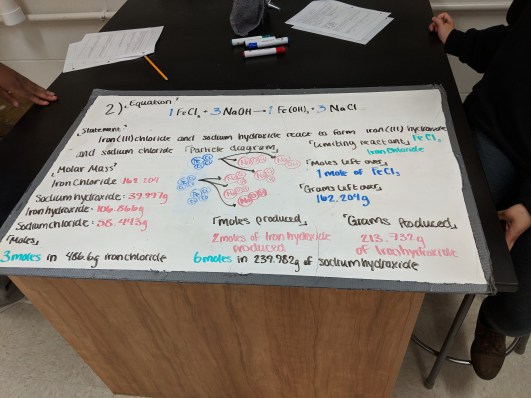 2) "Equation"
1 FeCl₃ + 3 NaOH → 1 Fe(OH)₃ + 3 NaCl
"Statement"
Iron(III)chloride and sodium hydroxide react to form iron(III) hydroxide
and sodium chloride
"Particle diagram"
"Limiting reactant" FeCl₃
Iron chloride
"Molar Mass"
Iron Chloride: 162.204
Sodium hydroxide: 39.997g
Iron hydroxide: 106.866g
Sodium chloride: 58.443g
"Moles left over"
1 mole of FeCl₃
"Grams left over"
162.204g
"moles produced"
2 moles of Iron hydroxide
produced
"Grams Produced"
213.732g
of Iron hydroxide
"Moles"
3 moles in 486.6g iron chloride
6 moles in 239.982g of sodium hydroxide